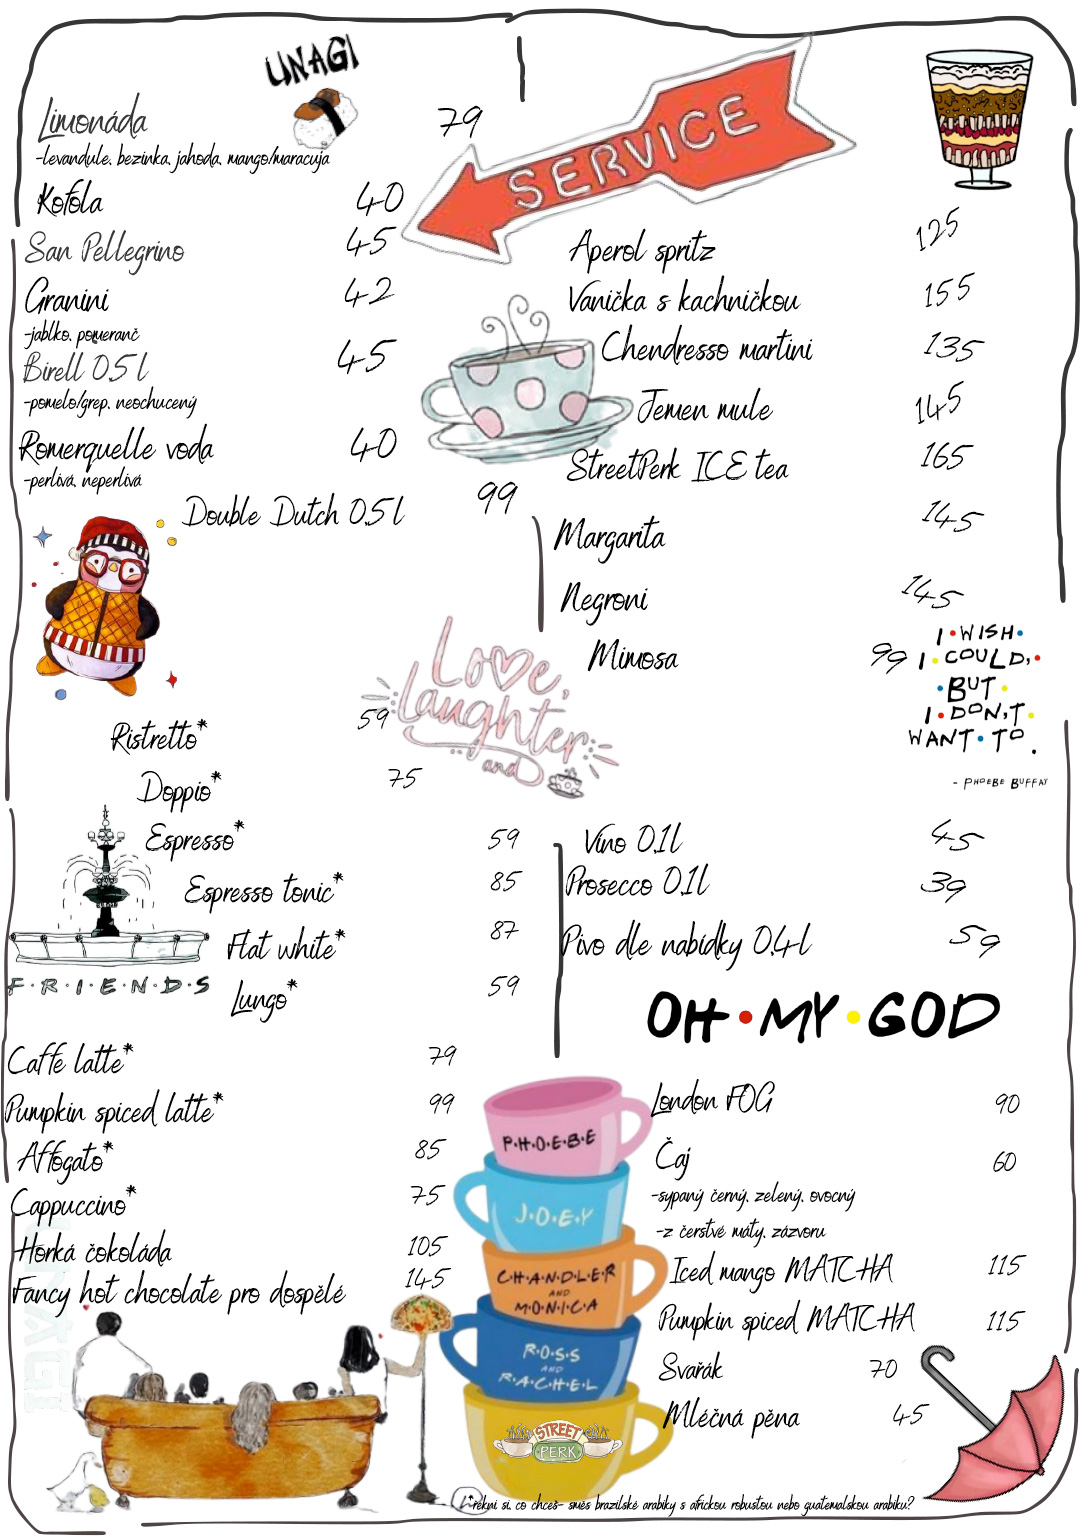 UNAGI
Limonáda 79
-levandule, bezinka, jahoda, mango/maracuja
Kofola 40
San Pellegrino 45
Granini 42
-jablko, pomeranč
Birell 0,5 l 45
-pomelo/grep, neochucený
Romerquelle voda 40
-perlivá, neperlivá
Double Dutch 0,5 l 99
SERVICE
Aperol spritz 125
Vanička s kachničkou 155
Chendresso martini 135
Jemen mule 145
StreetPerk ICE tea 165
Margarita 145
Negroni 145
Mimosa 99
I WISH
I COULD,
BUT
I DON'T
WANT TO.
- PHOEBE BUFFAY
Love,
Laughter
and
Ristretto* 59
Doppio* 75
Espresso* 59
Espresso tonic* 85
Flat white* 87
Lungo* 59
F·R·I·E·N·D·S
Víno 0,1l 45
Prosecco 0,1l 39
Pivo dle nabídky 0,4l 59
OH·MY·GOD
Caffe latte* 79
Pumpkin spiced latte* 99
Affogato* 85
Cappuccino* 75
Horká čokoláda 105
Fancy hot chocolate pro dospělé 145
UNAGI
P·H·O·E·B·E
J·O·E·Y
C·H·A·N·D·L·E·R
AND
M·O·N·I·C·A
R·O·S·S
AND
R·A·C·H·E·L
STREET
PERK
London FOG 90
Čaj 60
-sypaný černý, zelený, ovocný
-z čerstvé máty, zázvoru
Iced mango MATCHA 115
Pumpkin spiced MATCHA 115
Svařák 70
Mléčná pěna 45
*řekni si, co chceš- směs brazilské arabiky s africkou robustou nebo guatemalskou arabiku?